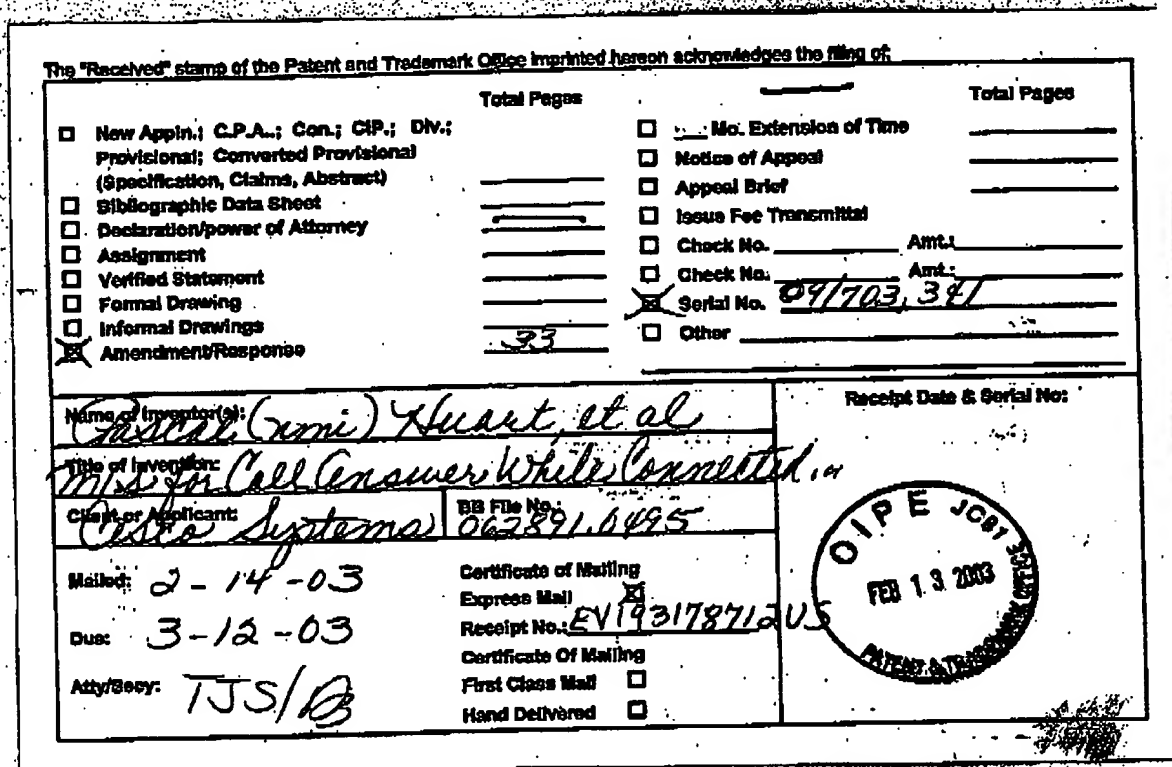 The "Received" stamp of the Patent and Trademark Office imprinted hereon acknowledges the filing of:
Total Pages
New Appln.; C.P.A..; Con.; CIP.; Div.;
Provisional; Converted Provisional
(Specification, Claims, Abstract)
Bibliographic Data Sheet
Declaration/power of Attorney
Assignment
Verified Statement
Formal Drawing
Informal Drawings
Amendment/Response 33
Total Pages
Mo. Extension of Time
Notice of Appeal
Appeal Brief
Issue Fee Transmittal
Check No. Amt.:
Check No. Amt.:
Serial No. 09/703,341
Other
Name of Inventor(s):
Pascal (nmi) Huart, et al
Title of Invention:
M/S for Call Answer While Connected...
Client or Applicant:
Cisco Systems
BB File No.:
062891.0495
Mailed: 2-14-03
Due: 3-12-03
Atty/Secy: TJS/
Certificate of Mailing
Express Mail
Receipt No.: EV193178712US
Certificate Of Mailing
First Class Mail
Hand Delivered
Receipt Date & Serial No:
OIPE
FEB 13 2003
PATENT & TRADEMARK OFFICE